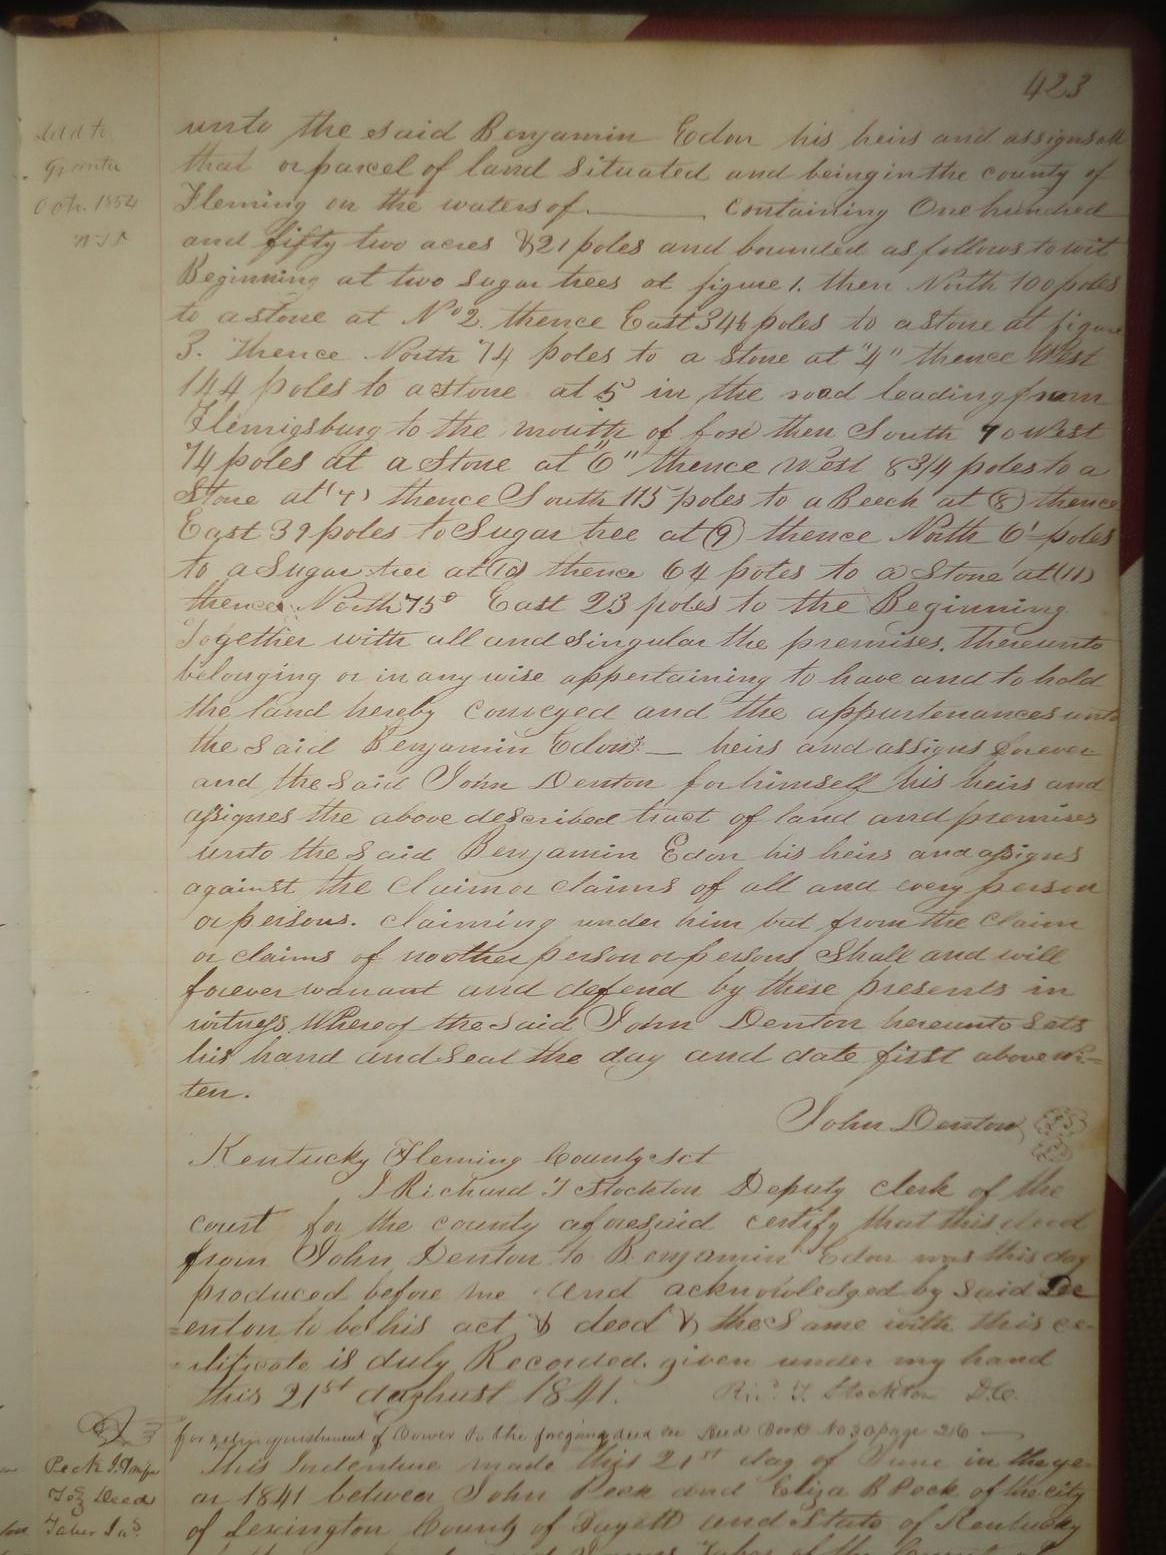 423
unto the said Benjamin Edon his heirs and assigns all
that or parcel of land Situated and being in the county of
Fleming on the waters of ———— containing One hundred
and fifty two acres & 21 poles and bounded as follows to wit
Beginning at two Sugar trees at figure 1. then North 100 poles
to a stone at No 2. thence East 346 poles to a stone at figure
3. Thence North 74 poles to a Stone at "4" thence West
144 poles to a stone at 5 in the road leading from
Flemigsburg to the mouth of fox then South 70 West
74 poles at a Stone at "6" thence West 83/4 poles to a
Stone at (7) thence South 115 poles to a Beech at (8) thence
East 39 poles to Sugar tree at (9) thence North 6 poles
to a Sugar tree at (10) thence 64 poles to a Stone at (11)
thence North 75° East 23 poles to the Beginning
Together with all and singular the premises. thereunto
belonging or in any wise appertaining to have and to hold
the land hereby conveyed and the appurtenances unto
the said Benjamin Edons — heirs and assigns forever
and the said John Denton for himself his heirs and
assignes the above described tract of land and premises
unto the said Benjamin Edon his heirs and assigns
against the claim or claims of all and every person
or persons. claiming under him but from the claim
or claims of no other person or persons Shall and will
forever warrant and defend by these presents in
witness Whereof the said John Denton hereunto sets
his hand and Seal the day and date first above wr=
ten.
John Denton
Kentucky Fleming County Sct
I Richard T Stockton Deputy clerk of the
court for the county aforesaid certify that this deed
from John Denton to Benjamin Edon was this day
produced before me and acknowledged by said De
=enton to be his act & deed & the Same with this ce=
=rtificate is duly Recorded. given under my hand
this 21st 1841. Ric. T. Stockton D.C.
for relinquishment of Dower to the foregoing deed see Deed Book No 30 page 216 —
This Indenture made this 21st day of June in the ye=
ar 1841 between John Peck and Eliza B Peck of the city
of Lexington County of Fayett and State of Kentucky
Grantee
Oct. 1854
Peck J.
To Deed
Taber Jas